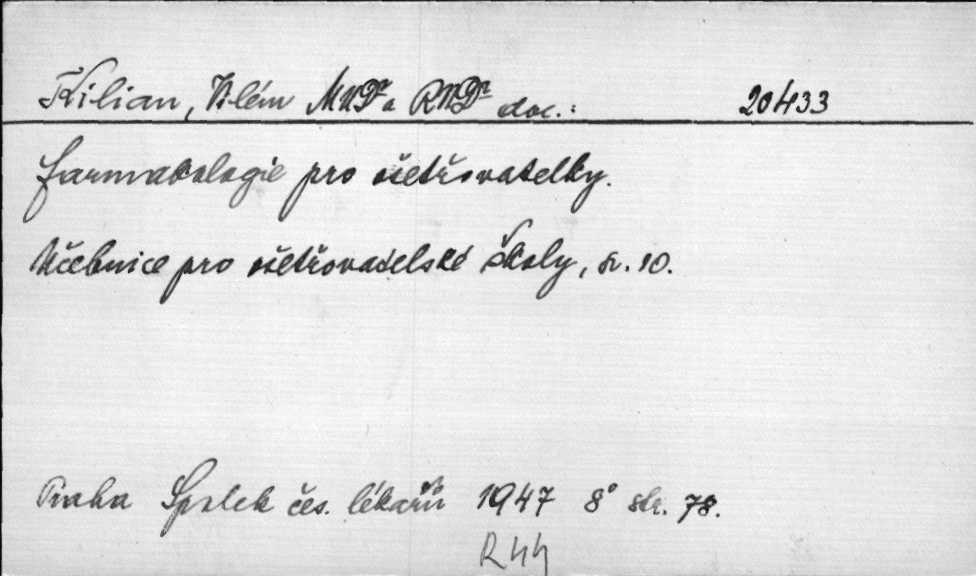 Kilian, Vilém MUDr a RNDr doc.: 20433
Farmakologie pro ošetřovatelky.
Učebnice pro ošetřovatelské školy, sv. 10.
Praha Spolek čes. lékařů 1947 8° str. 78.
R44